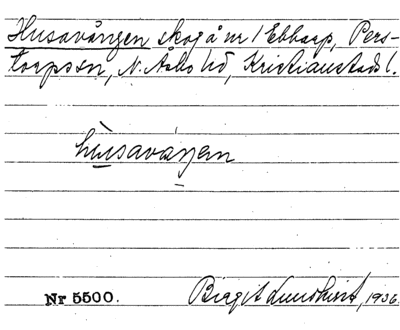 Husavången skog å nr 1 Ebbarp, Pers-
torps sn, N. Åsbo hd, Kristianstads l.
husaváŋen
Nr 5500. Birgit Lundkvist, 1936.